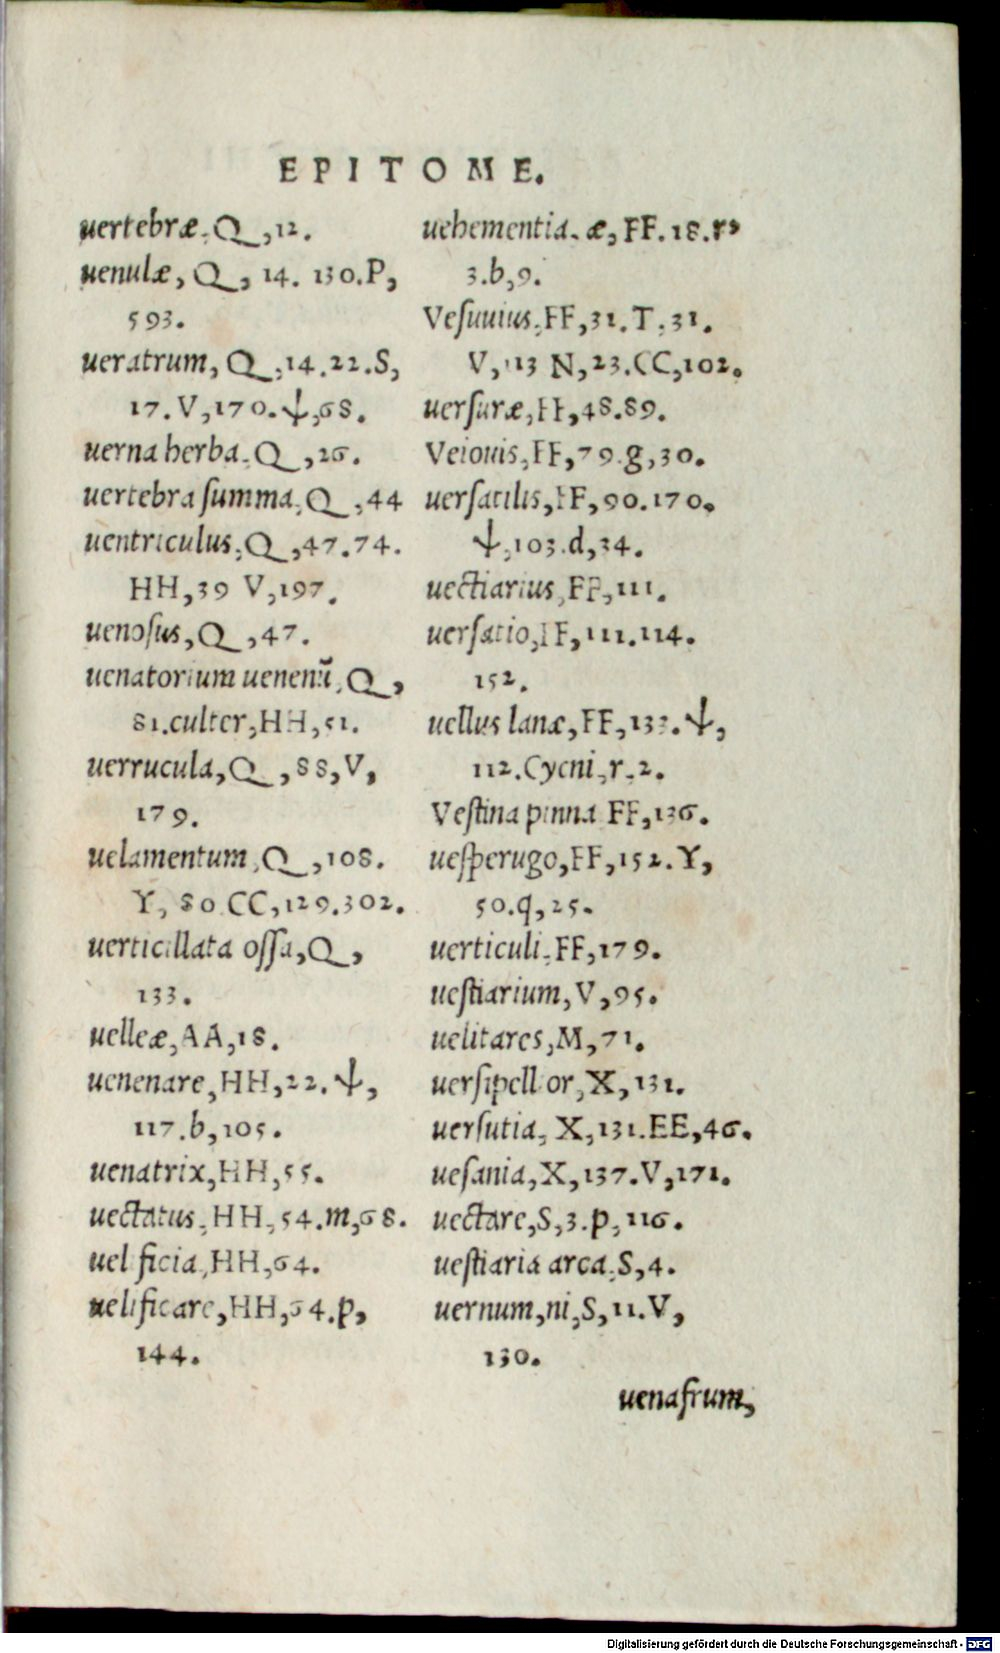 EPITOME.
uertebræ, Q, 12.
uenulæ, Q, 14. 130. P,
593.
ueratrum, Q, 14.22.S,
17.V,170.ψ,68.
uerna herba, Q, 26.
uertebra ſumma, Q, 44
uentriculus, Q, 47.74.
HH,39 V,197.
uenoſus, Q, 47.
uenatorium uenenū, Q,
81.culter,HH,51.
uerrucula, Q, 88, V,
179.
uelamentum, Q, 108.
Y, 80 CC,129.302.
uerticillata oſſa, Q,
133.
uelleæ, AA,18.
uenenare, HH,22.ψ,
117.b,105.
uenatrix,HH,55.
uectatus, HH, 54.m,68.
uel ficia, HH,64.
uelificare,HH,64.p,
144.
uehementia. æ, FF. 18.r,
3.b,9.
Veſuuius, FF,31.T,31.
V, 113 N,23.CC,102.
uerſuræ,FF,48.89.
Veiouis, FF,79.g,30.
uerſatilis,FF,90.170.
ψ,103.d,34.
uectiarius, FF,111.
uerſatio,FF,111.114.
152.
uellus lanæ, FF,133.ψ,
112.Cycni, r,2.
Veſtina pinna FF,136.
ueſperugo,FF,152.Y,
50.q,25.
uerticuli, FF,179.
ueſtiarium, V,95.
uelitares, M,71.
uerſipell or, X,131.
uerſutia, X,131.EE,46.
ueſania, X,137.V,171.
uectare, S,3.p,116.
ueſtiaria arca, S,4.
uernum,ni, S,11.V,
130.
uenafrum,
Digitalisierung gefördert durch die Deutsche Forschungsgemeinschaft - DFG